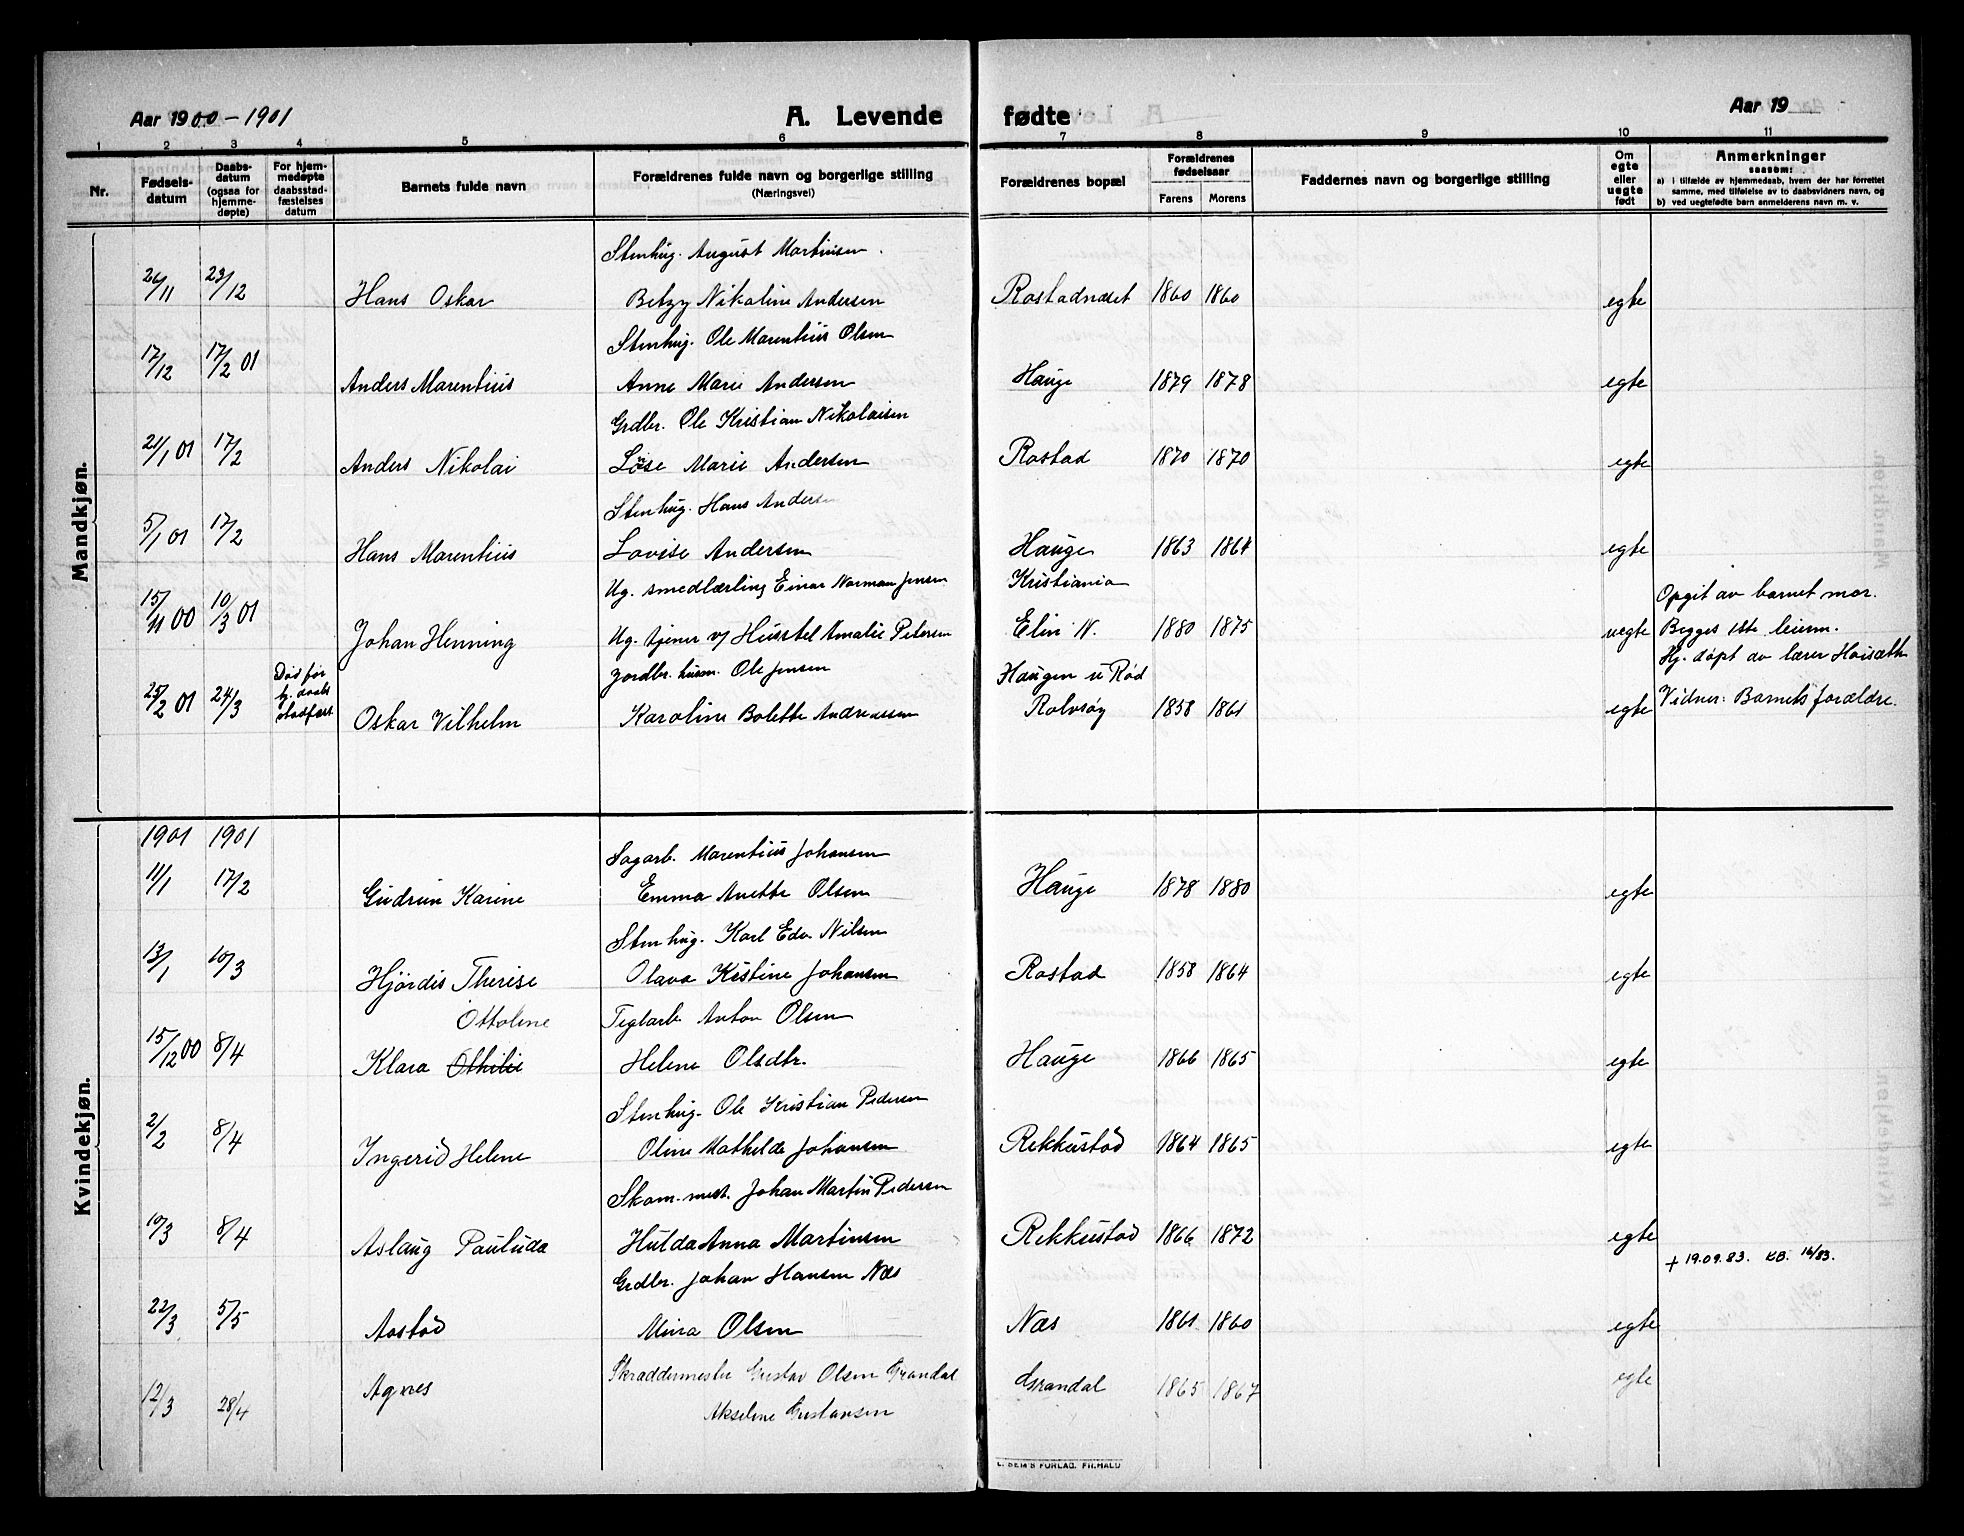 Aar 1900-1901
A. Levende
fødte
Aar 19
1 2 3 4 5 6 7 8 9 10 11
Nr.
Fødsels-
datum
Daabs-
datum
(ogsaa for
hjemme-
døpte)
For hjem-
medøpte
daabsstad-
fæstelses
datum
Barnets fulde navn
Forældrenes fulde navn og borgerlige stilling
(Næringsvei)
Forældrenes bopæl
Forældrenes
fødselsaar
Farens Morens
Faddernes navn og borgerlige stilling
Om
egte
eller
uegte
født
Anmerkninger
saasom:
a) i tilfælde av hjemmedaab, hvem der har forrettet
samme, med tilføielse av to daabsvidners navn, og
b) ved uegtefødte barn anmelderens navn m. v.
Mandkjøn.
Stenhug. August Martinsen
26/11 23/12 Hans Oskar Betzy Nikoline Andersen Rostadnæset 1860 1860 egte
Stenhug. Ole Marentius Olsen
17/12 17/2 01 Anders Marentius Anne Marie Andersen Hauge 1879 1878 egte
Grdbr. Ole Kristian Nikolaisen
21/1 01 17/2 Anders Nikolai Marie Andersen Rostad 1870 1870 egte
Stenhug. Hans Andersen
5/1 01 17/2 Hans Marentius Lovise Andersen Hauge 1863 1864 egte
Ug. smedlærling Einar Norman Jensen Kristiania Opgit av barnet mor.
15/11 00 10/3 01 Johan Henning Ug. tjener v/ Amalie Petersen Elin W. 1880 1875 uegte Begges 1ste leierm.
Død før hj. daabs stadfæst Jordbr. husm. Ole Jensen Haugen u Rød Hj. døpt av lærer Hoisæth
25/2 01 24/3 Oskar Vilhelm Karoline Bolette Andreassen Rolvsøy 1858 1861 egte Vidner: Barnets forældre.
Kvindekjøn.
1901 1901
Sagarb. Marentius Johansen
11/1 17/2 Gudrun Karine Emma Anette Olsen Hauge 1878 1880 egte
Stenhug. Karl Edv Nilsen
13/1 10/3 Hjørdis Therese Olava Kristine Johansen Rostad 1858 1864 egte
Ottoline Teglarb. Anton Olsen
15/12 00 8/4 Klara Othilie Helene Olsdtr. Hauge 1866 1865 egte
Stenhug. Ole Kristian Pedersen
2/2 8/4 Ingerid Helene Oline Mathilde Johansen Rekkustad 1864 1865 egte
Skom. mest. Johan Martin Pedersen
10/3 8/4 Aslaug Paulida Hulda Anna Martinsen Rekkustad 1866 1872 egte
† 19.09.83. KB. 16/83.
Grdbr. Johan Hansen Næs
22/3 5/5 Aastad Mina Olsen Næs 1861 1860 egte
Skraddermester Gustav Olsen Grandal
12/3 28/4 Agnes Akseline Gustavsen Grandal 1865 1867 egte
SEM'S FORLAG. FR.HALD